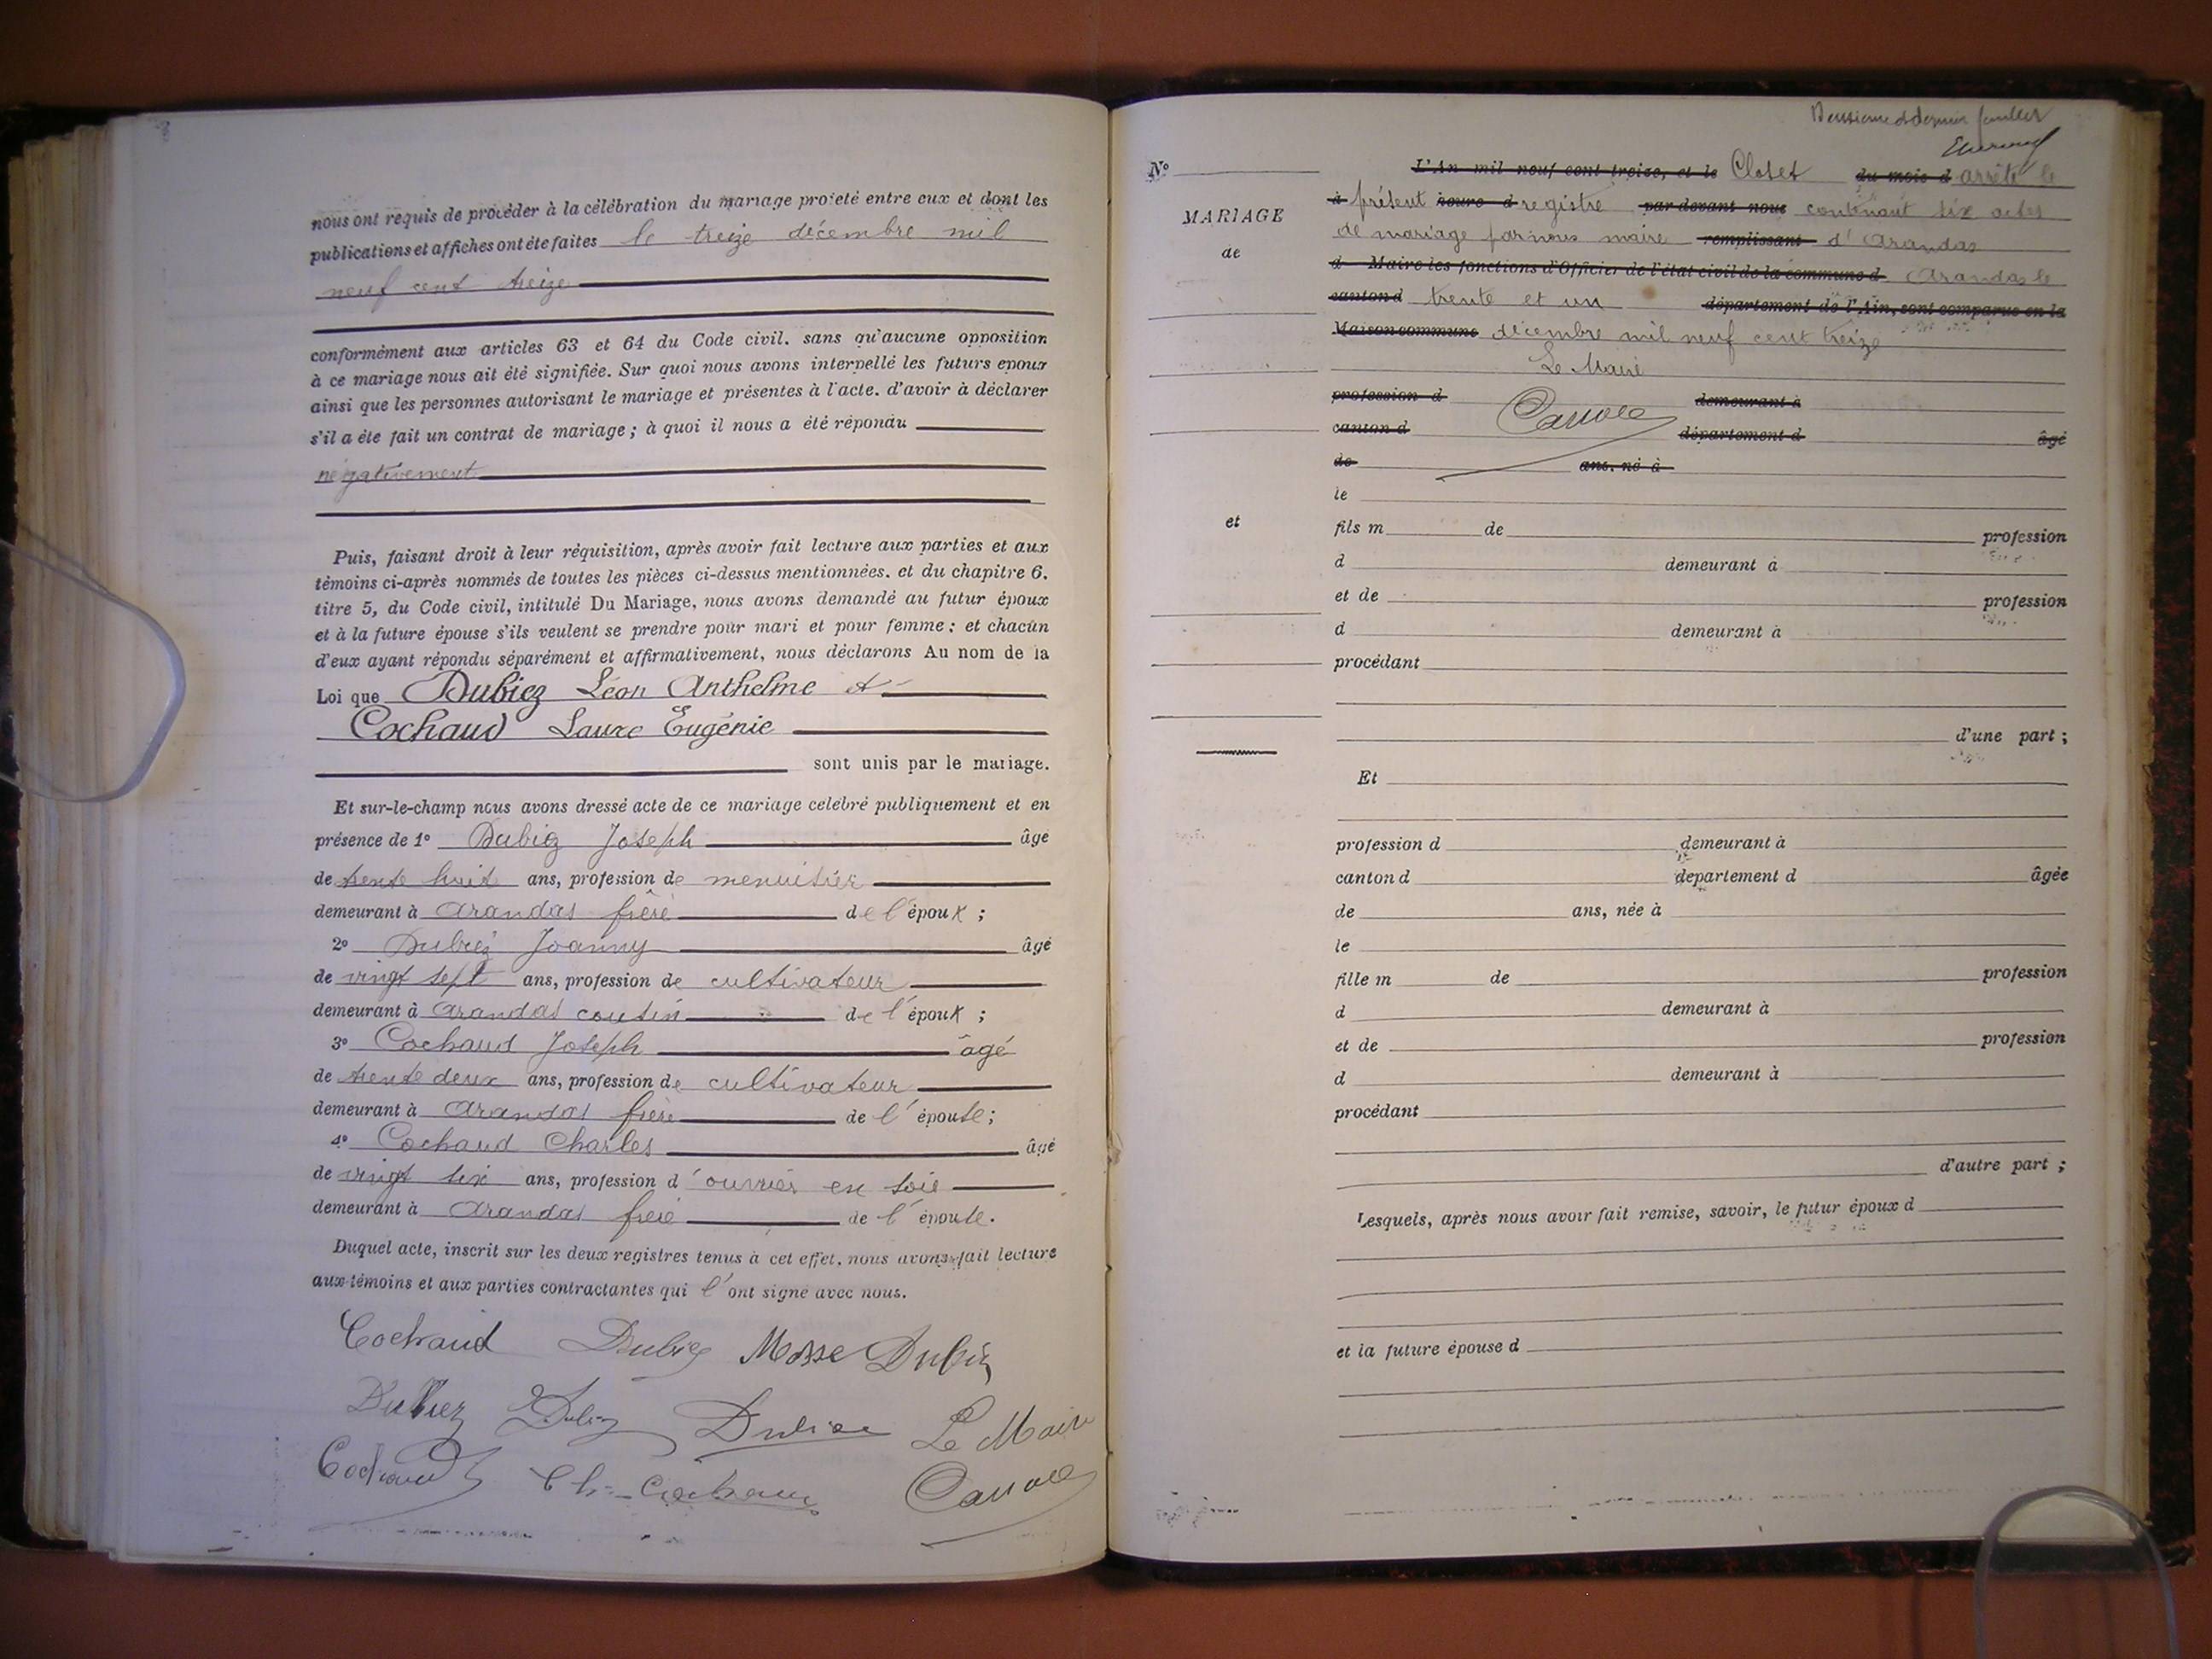 nous ont requis de procéder à la célébration du mariage projeté entre eux et dont les
publications et affiches ont été faites le treize décembre mil
neuf cent treize
conformément aux articles 63 et 64 du Code civil. sans qu'aucune opposition
à ce mariage nous ait été signifiée. Sur quoi nous avons interpellé les futurs epoux
ainsi que les personnes autorisant le mariage et présentes à l'acte. d'avoir à déclarer
s'il a été fait un contrat de mariage ; à quoi il nous a été répondu
négativement
Puis, faisant droit à leur réquisition, après avoir fait lecture aux parties et aux
témoins ci-après nommés de toutes les pièces ci-dessus mentionnées. et du chapitre 6.
titre 5, du Code civil, intitulé Du Mariage, nous avons demandé au futur époux
et à la future épouse s'ils veulent se prendre pour mari et pour femme ; et chacun
d'eux ayant répondu séparément et affirmativement, nous déclarons Au nom de la
Loi que Dubiez Léon Anthelme et
Cochaud Laure Eugénie
sont unis par le mariage.
Et sur-le-champ nous avons dressé acte de ce mariage celébré publiquement et en
présence de 1º Dubiez Joseph âgé
de trente huit ans, profession de menuisier
demeurant à Arandas frère de l'époux ;
2º Dubiez Joanny âgé
de vingt sept ans, profession de cultivateur
demeurant à Arandas cousin de l'époux ;
3º Cochaud Joseph âgé
de trente deux ans, profession de cultivateur
demeurant à Arandas frère de l'épouse ;
4º Cochaud Charles âgé
de vingt six ans, profession d'ouvrier en soie
demeurant à Arandas frère de l'épouse.
Duquel acte, inscrit sur les deux registres tenus à cet effet, nous avons fait lecture
aux témoins et aux parties contractantes qui l'ont signé avec nous.
Cochaud Dubiez Mosse Dubiez
Dubiez Dubiez Dubiez Le Maire
Cochaud Ch. Cochaud
Deuxième et dernier feuillet
Nº L'An mil neuf cent treize, et le Clos et du mois d arrêté le
à présent heure d registre par devant nous contenant six actes
MARIAGE
de mariage par nous maire remplissant d'Arandas
de
d Maire les fonctions d'Officier de l'état civil de la commune d Arandas le
canton d trente et un département de l'Ain, sont comparus en la
Maison commune décembre mil neuf cent treize
Le Maire
profession d demeurant à
canton d département d âgé
de ans, né à
le
et
fils m de profession
d demeurant à
et de profession
d demeurant à
procédant
d'une part ;
Et
profession d demeurant à
canton d département d âgée
de ans, née à
le
fille m de profession
d demeurant à
et de profession
d demeurant à
procédant
d'autre part ;
Lesquels, après nous avoir fait remise, savoir, le futur époux d
et la future épouse d